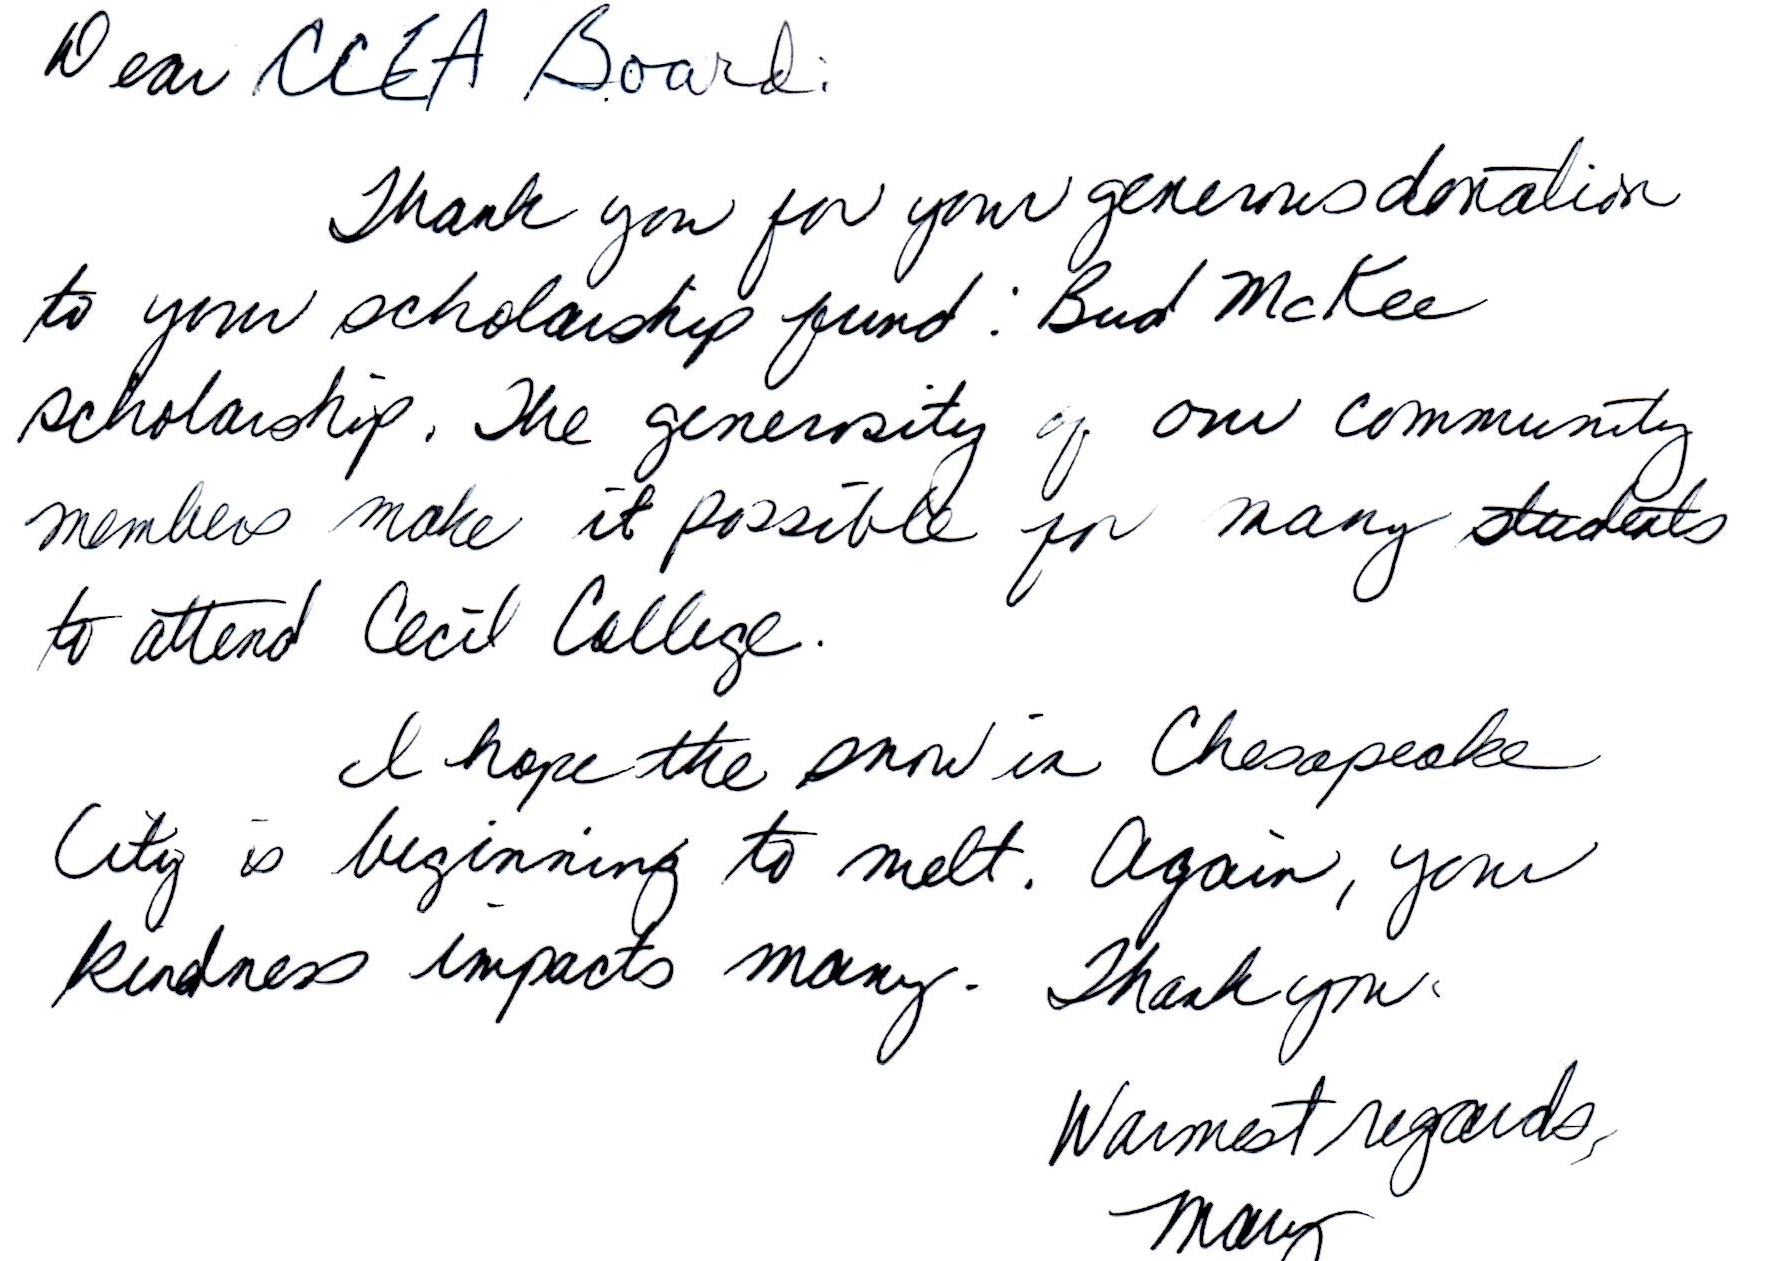 Dear CCEA Board:
Thank you for your generous donation
to your scholarship fund: Bud McKee
scholarship. The generosity of our community
members make it possible for many students
to attend Cecil College.
I hope the snow in Chesapeake
City is beginning to melt. Again, your
kindness impacts many. Thank you.
Warmest regards,
Mary